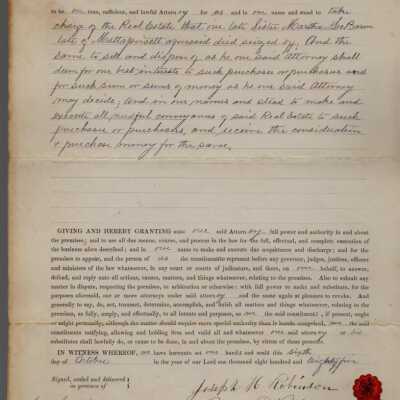 to be our true, sufficient, and lawful Attorney for us and in our name and stead to take
charge of the Real Estate that our late Sister Martha
late of Mattapoisett aforesaid died seized of; And the
same to sell and dispose of as our said Attorney shall
deem for our best interests to such purchaser or purchasers and
for such sum or sums of money as he our said Attorney
may decide; and in our names and stead to make and
execute all needful conveyances of said Real Estate to such
purchaser or purchasers, and receive the consideration
& purchase money for the same.
GIVING AND HEREBY GRANTING unto our said Attorney full power and authority in and about
the premises; and to use all due means, course, and process in the law for the full, effectual, and complete execution of
the business afore described; and in our name to make and execute due acquittance and discharge; and for the
premises to appear, and the person of us the constituents represent before any governor, judges, justices, officers
and ministers of the law whatsoever, in any court or courts of judicature, and there, on our behalf, to answer,
defend, and reply unto all actions, causes, matters, and things whatsoever relating to the premises. Also to submit any
matter in dispute, respecting the premises, to arbitration or otherwise: with full power to make and substitute, for the
purposes aforesaid, one or more attorneys under said attorney and the same again at pleasure to revoke. And
generally to say, do, act, transact, determine, accomplish, and finish all matters and things whatsoever, relating to the
premises, as fully, amply, and effectually, to all intents and purposes, as we the said constituents if present, ought
or might personally, although the matter should require more special authority than is herein comprised, we the said
constituents ratifying, allowing, and holding firm and valid all and whatsoever our said attorney or his
substitutes shall lawfully do, or cause to be done, in and about the premises, by virtue of these presents.
IN WITNESS WHEREOF, we have hereunto set our hands and seals this sixth
day of October in the year of our Lord one thousand eight hundred and eighty five
Signed, sealed and delivered
in presence of
Joseph R Robinson